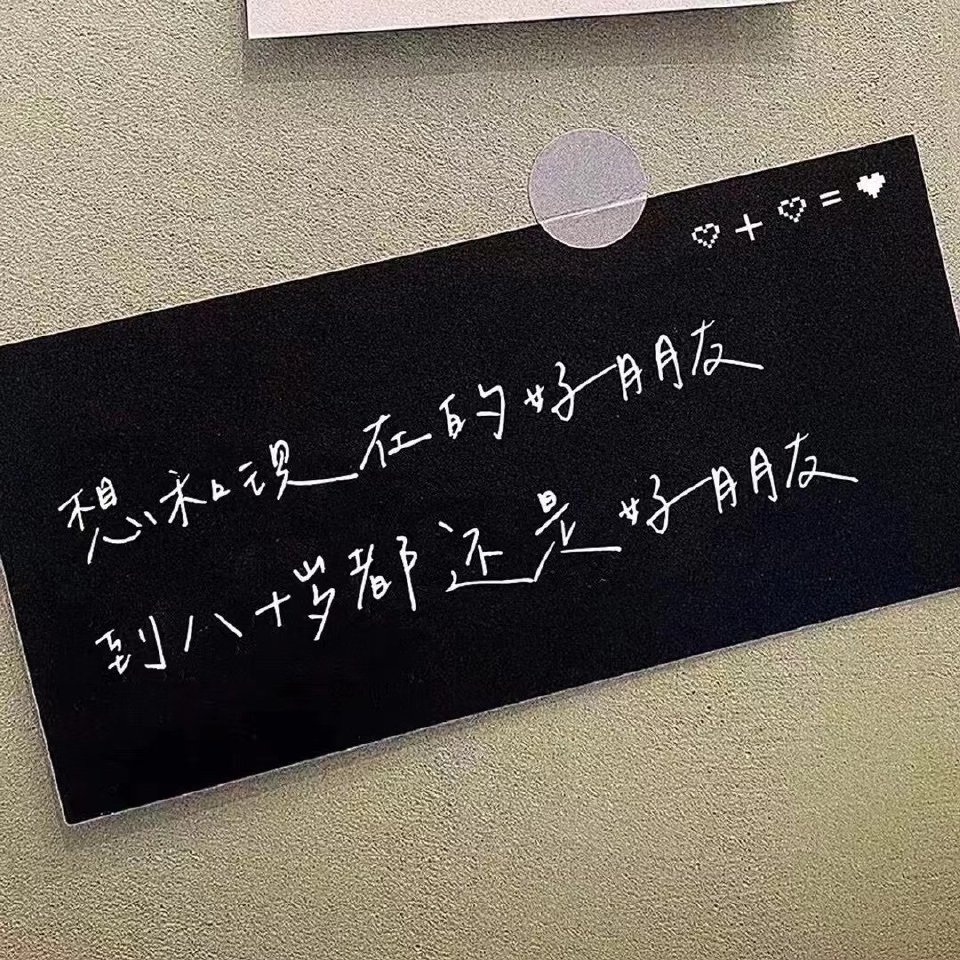 ♡ + ♡ = ♥
想和现在的好朋友
到八十岁都还是好朋友